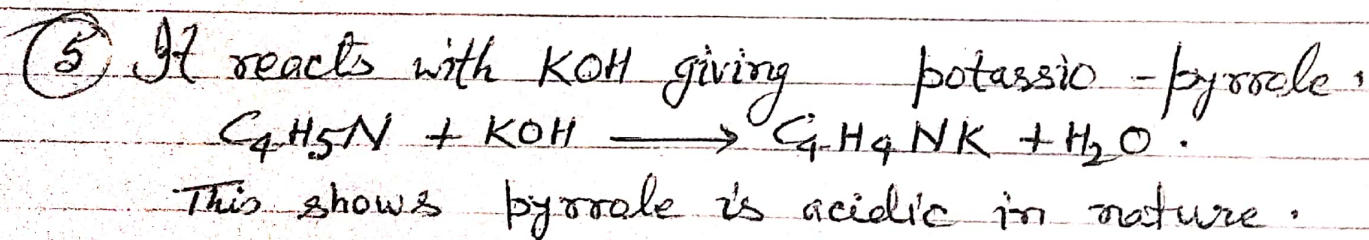 ⑤ It reacts with KOH giving potassio - pyrrole.
C₄H₅N + KOH ⟶ C₄H₄NK + H₂O.
This shows pyrrole is acidic in nature.